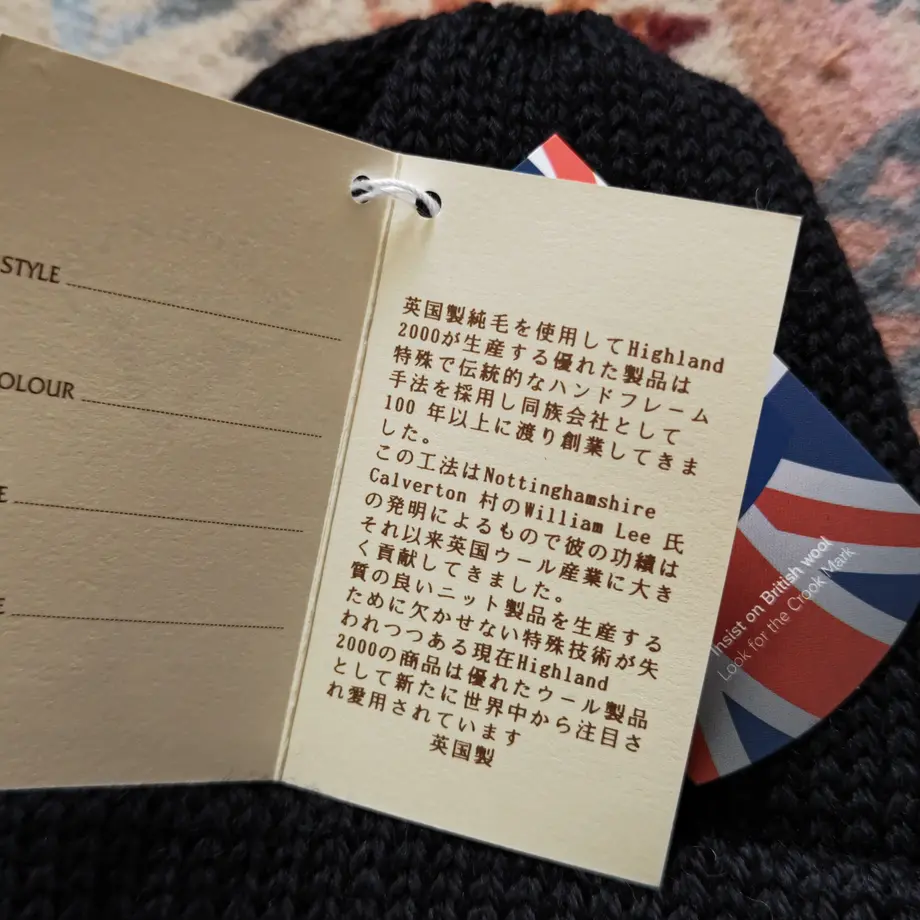 STYLE
OLOUR
E
E
英国製純毛を使用してHighland
2000が生産する優れた製品は
特殊で伝統的なハンドフレーム
手法を採用し同族会社として
100 年以上に渡り創業してきま
した。
この工法はNottinghamshire
Calverton 村のWilliam Lee 氏
の発明によるもので彼の功績は
それ以来英国ウール産業に大き
く貢献してきました。
質の良いニット製品を生産する
ために欠かせない特殊技術が失
われつつある現在Highland
2000の商品は優れたウール製品
として新たに世界中から注目さ
れ愛用されています
英国製
Insist on British wool
Look for the Crook Mark